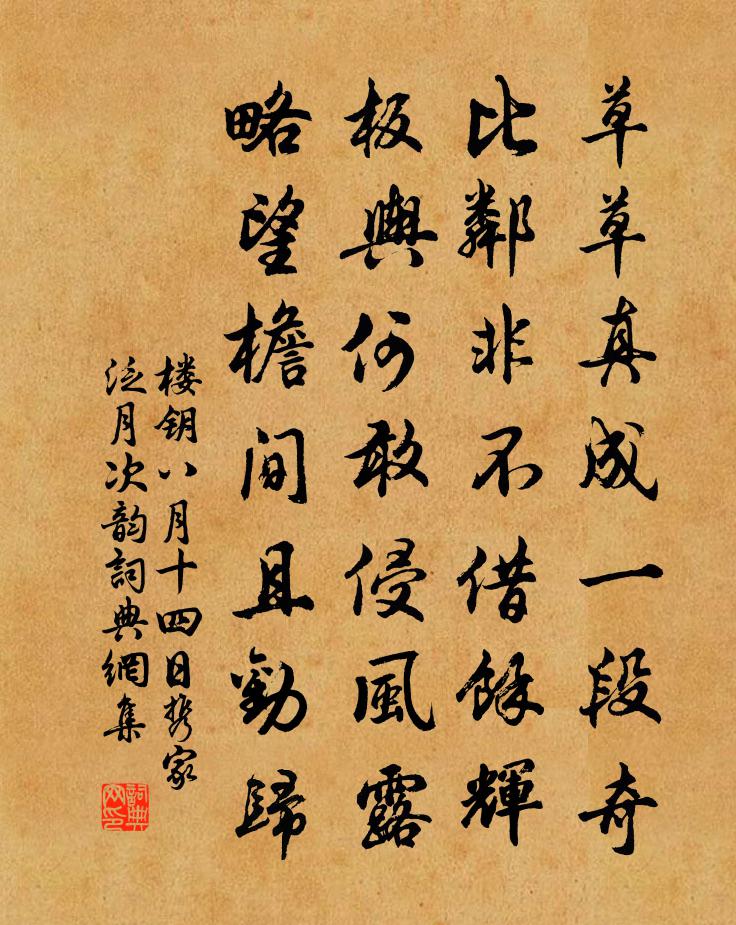 草草真成一段奇
比鄰非不借餘輝
板輿何敢侵風露
略望檐間且勸歸
楼钥八月十四日携家
泛月次韵詞典網集
詞典
网印